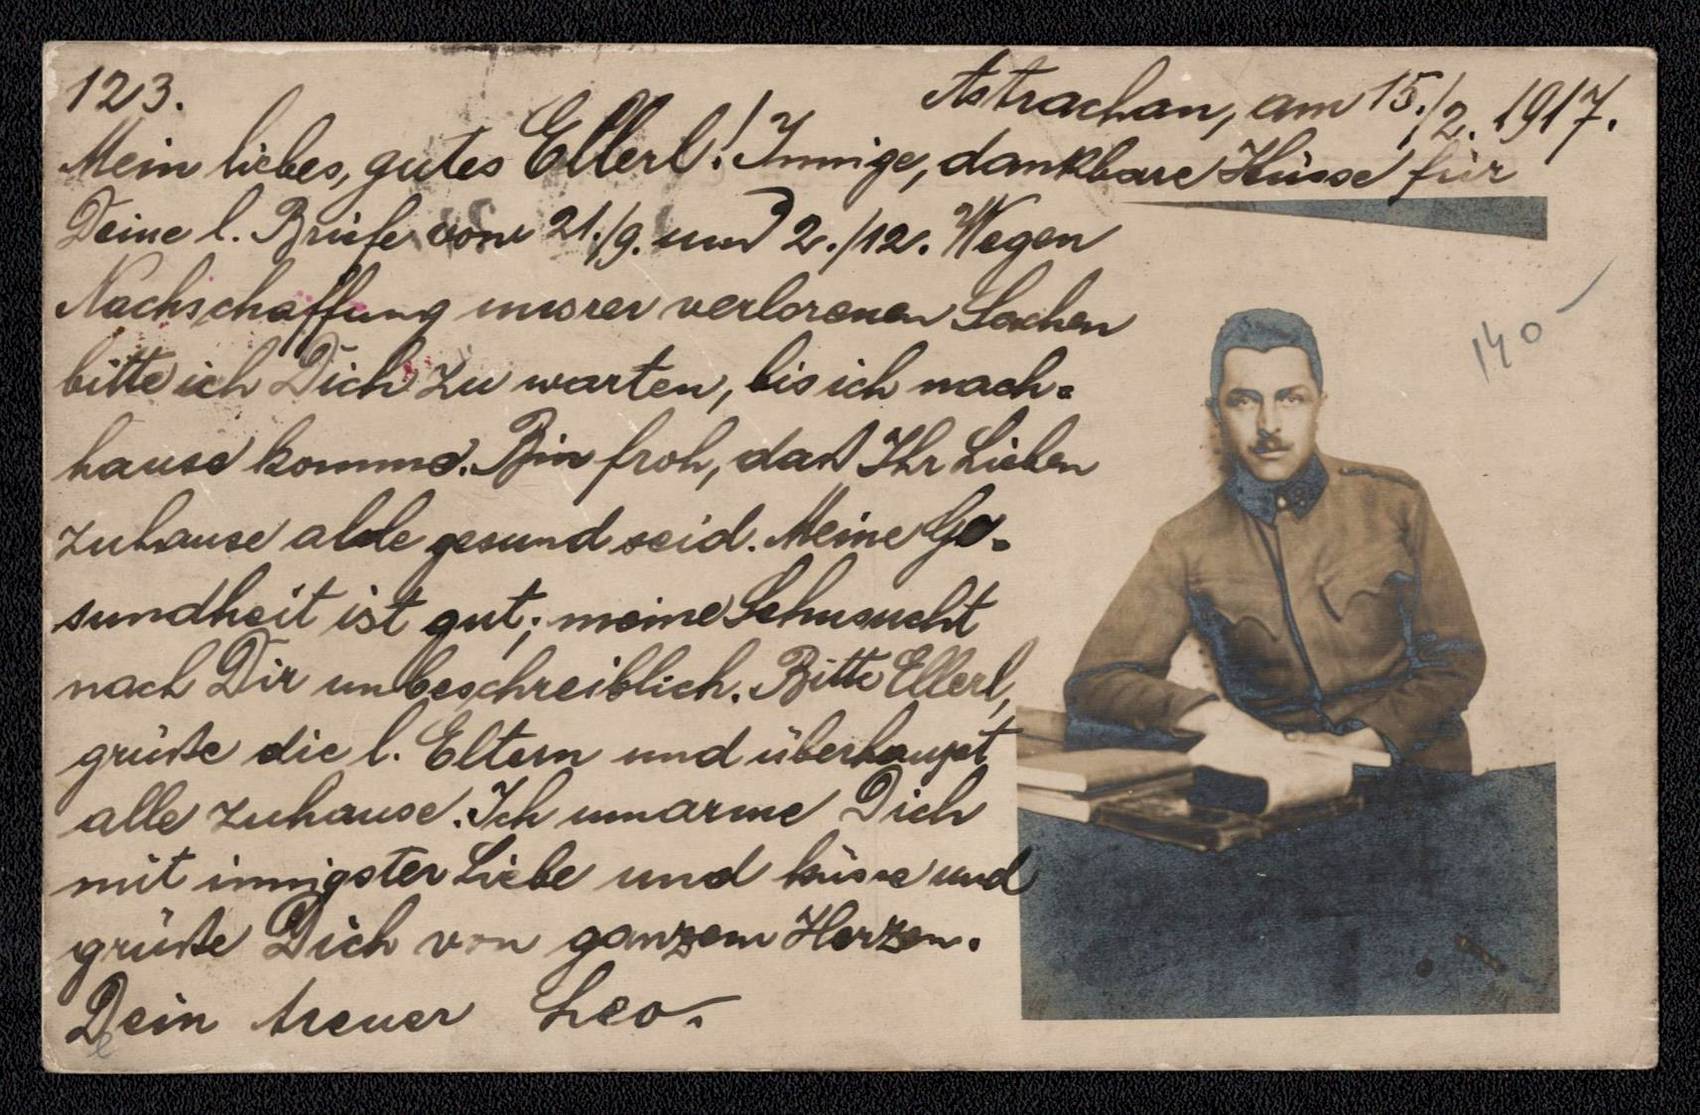 123.
Astrachan, am 15./2. 1917.
Mein liebes, gutes Ellerl! Innige, dankbare Küsse für
Deine l. Briefe vom 21./9. und 2./12. Wegen
Nachschaffung unsrer verlorenen Sachen
bitte ich Dich zu warten, bis ich nach=
hause komme. Bin froh, daß Ihr Lieben
zuhause alle gesund seid. Meine Ge=
sundheit ist gut; meine Sehnsucht
nach Dir unbeschreiblich. Bitte Ellerl,
grüße die l. Eltern und überhaupt
alle zuhause. Ich umarme Dich
mit innigster Liebe und küsse und
grüße Dich von ganzem Herzen.
Dein treuer Leo.
140